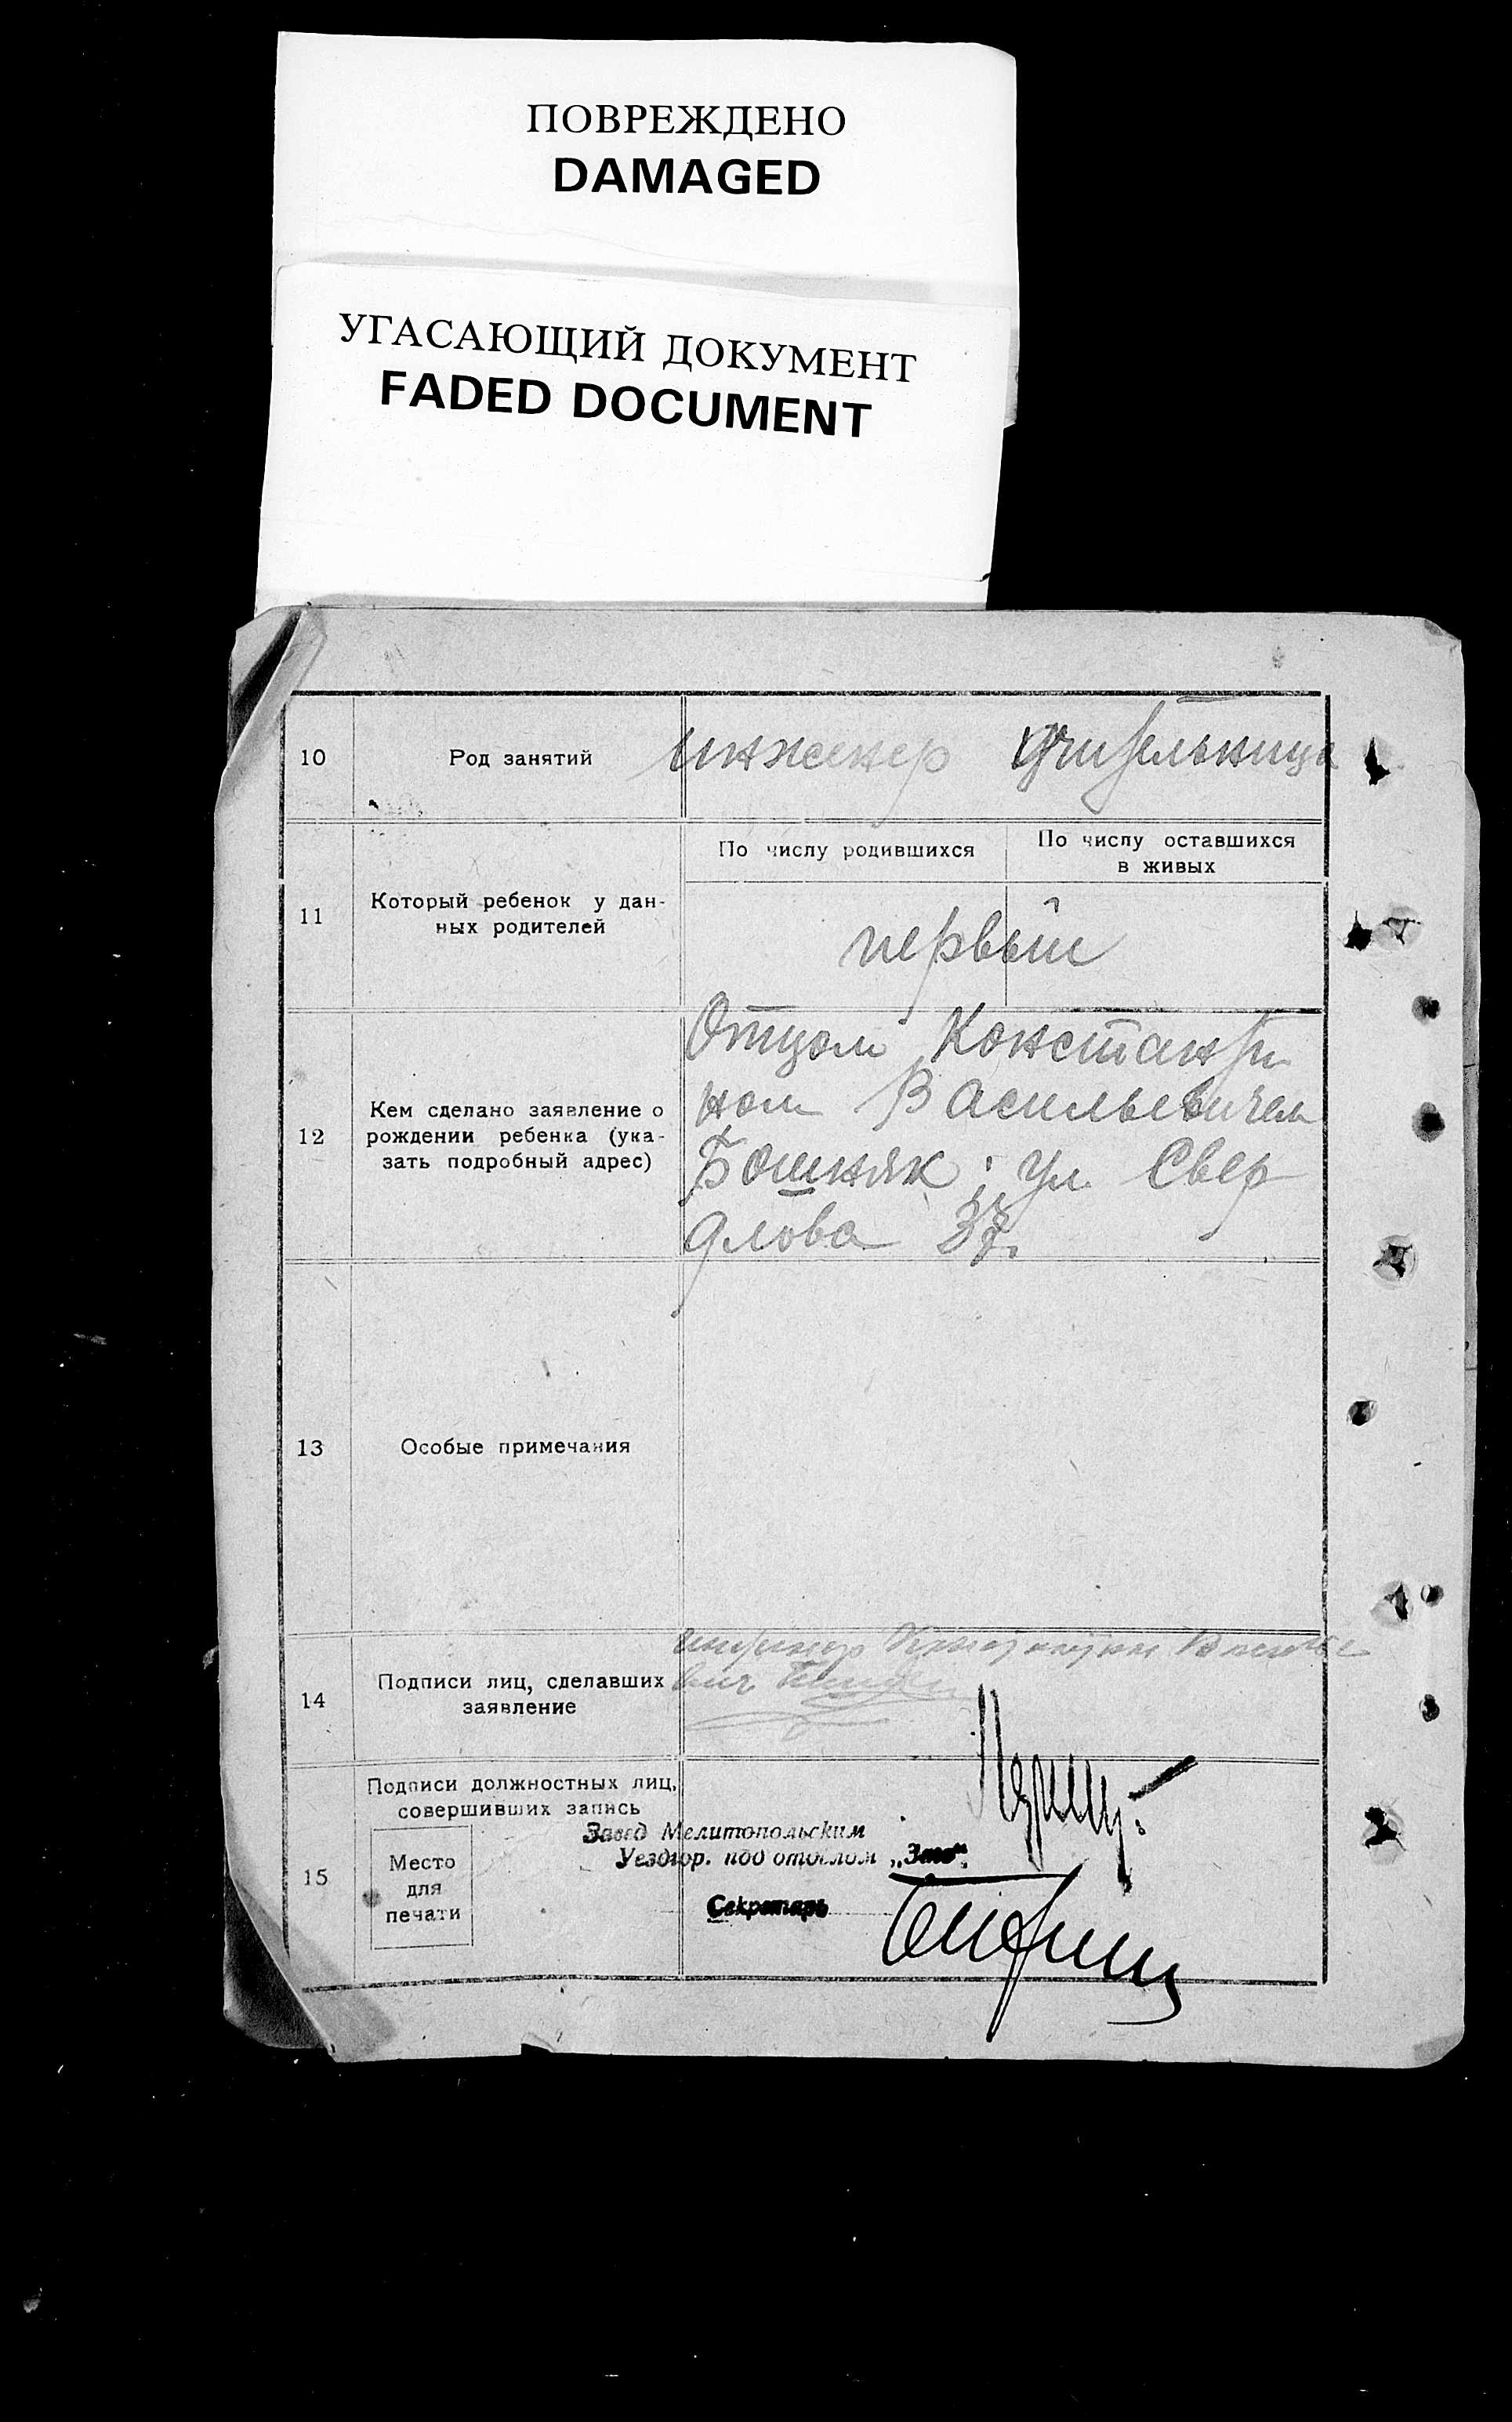 ПОВРЕЖДЕНО
DAMAGED
УГАСАЮЩИЙ ДОКУМЕНТ
FADED DOCUMENT
10 Род занятий инженер учительница
11 Который ребенок у дан-
ных родителей
По числу родившихся
По числу оставшихся
в живых
первый
12 Кем сделано заявление о
рождении ребенка (ука-
зать подробный адрес)
Отцом Константи
ном Васильевичем
Бошняк; ул. Свер
длова 37.
13 Особые примечания
14 Подписи лиц, сделавших
заявление
инженер Константин Василье
вич
15 Подписи должностных лиц,
совершивших запись
Место
для
печати
Завед Мелитопольским
Уездгор. под отделом „Загс“.
Секретарь